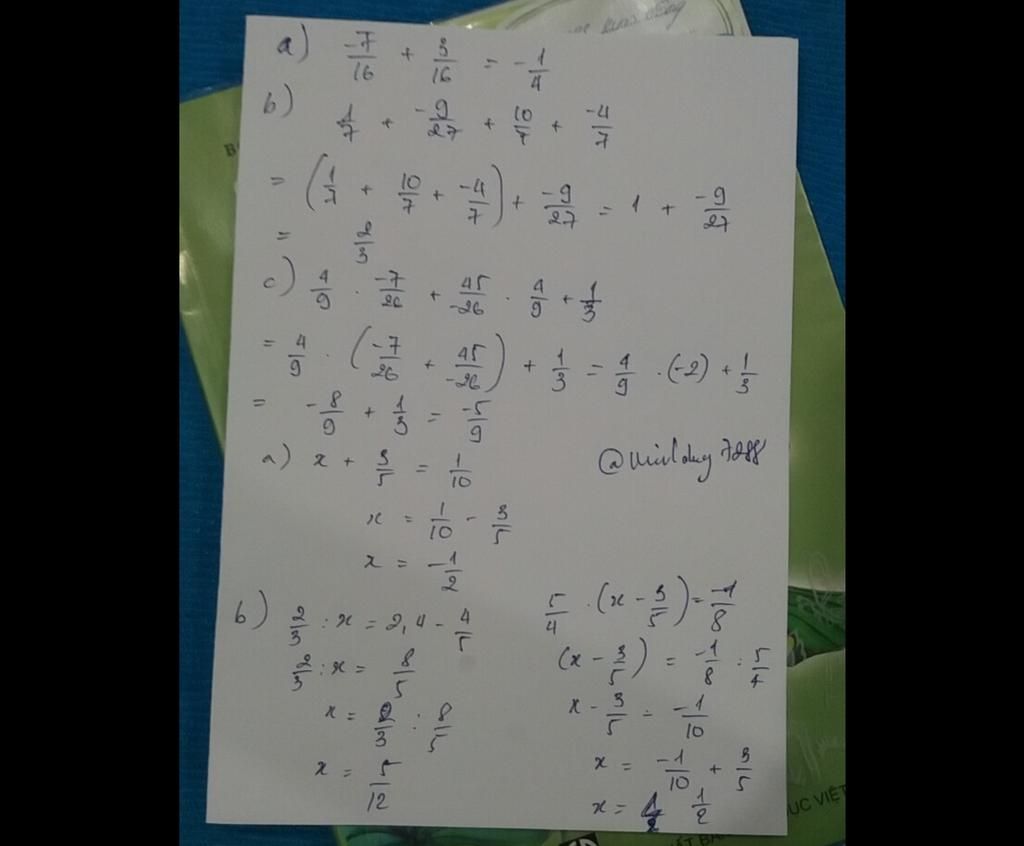 a) -7/16 + 3/16 = -1/4
b) 1/7 + -9/27 + 10/7 + -4/7
= (1/7 + 10/7 + -4/7) + -9/27 = 1 + -9/27
= 2/3
c) 4/9 . -7/26 + 45/-26 . 4/9 + 1/3
= 4/9 . (-7/26 + 45/-26) + 1/3 = 4/9 . (-2) + 1/3
= -8/9 + 1/3 = -5/9
a) x + 3/5 = 1/10
x = 1/10 - 3/5
x = -1/2
b) 2/3 : x = 2,4 - 4/5
2/3 : x = 8/5
x = 2/3 : 8/5
x = 5/12
5/4 . (x - 3/5) = -1/8
(x - 3/5) = -1/8 : 5/4
x - 3/5 = -1/10
x = -1/10 + 3/5
x = 1/2
ỤC VIỆT